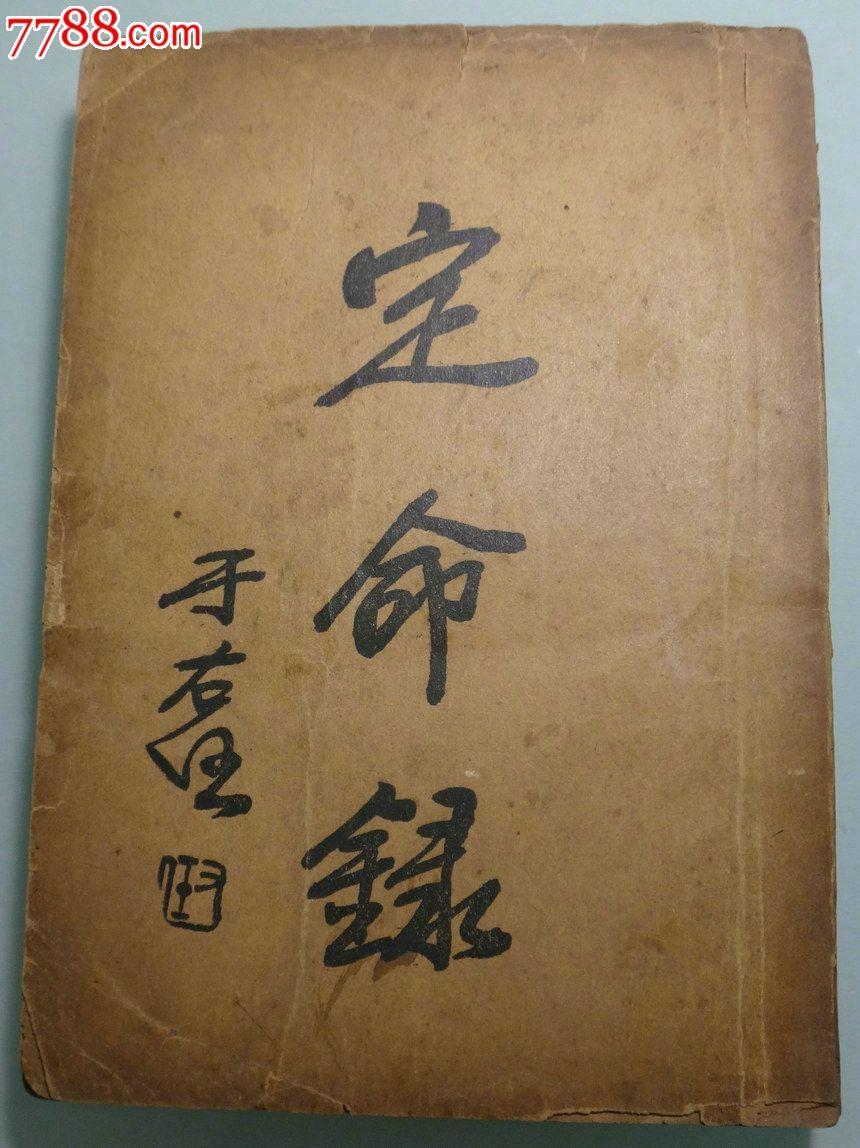 7788.com
定命錄
于右任
右任